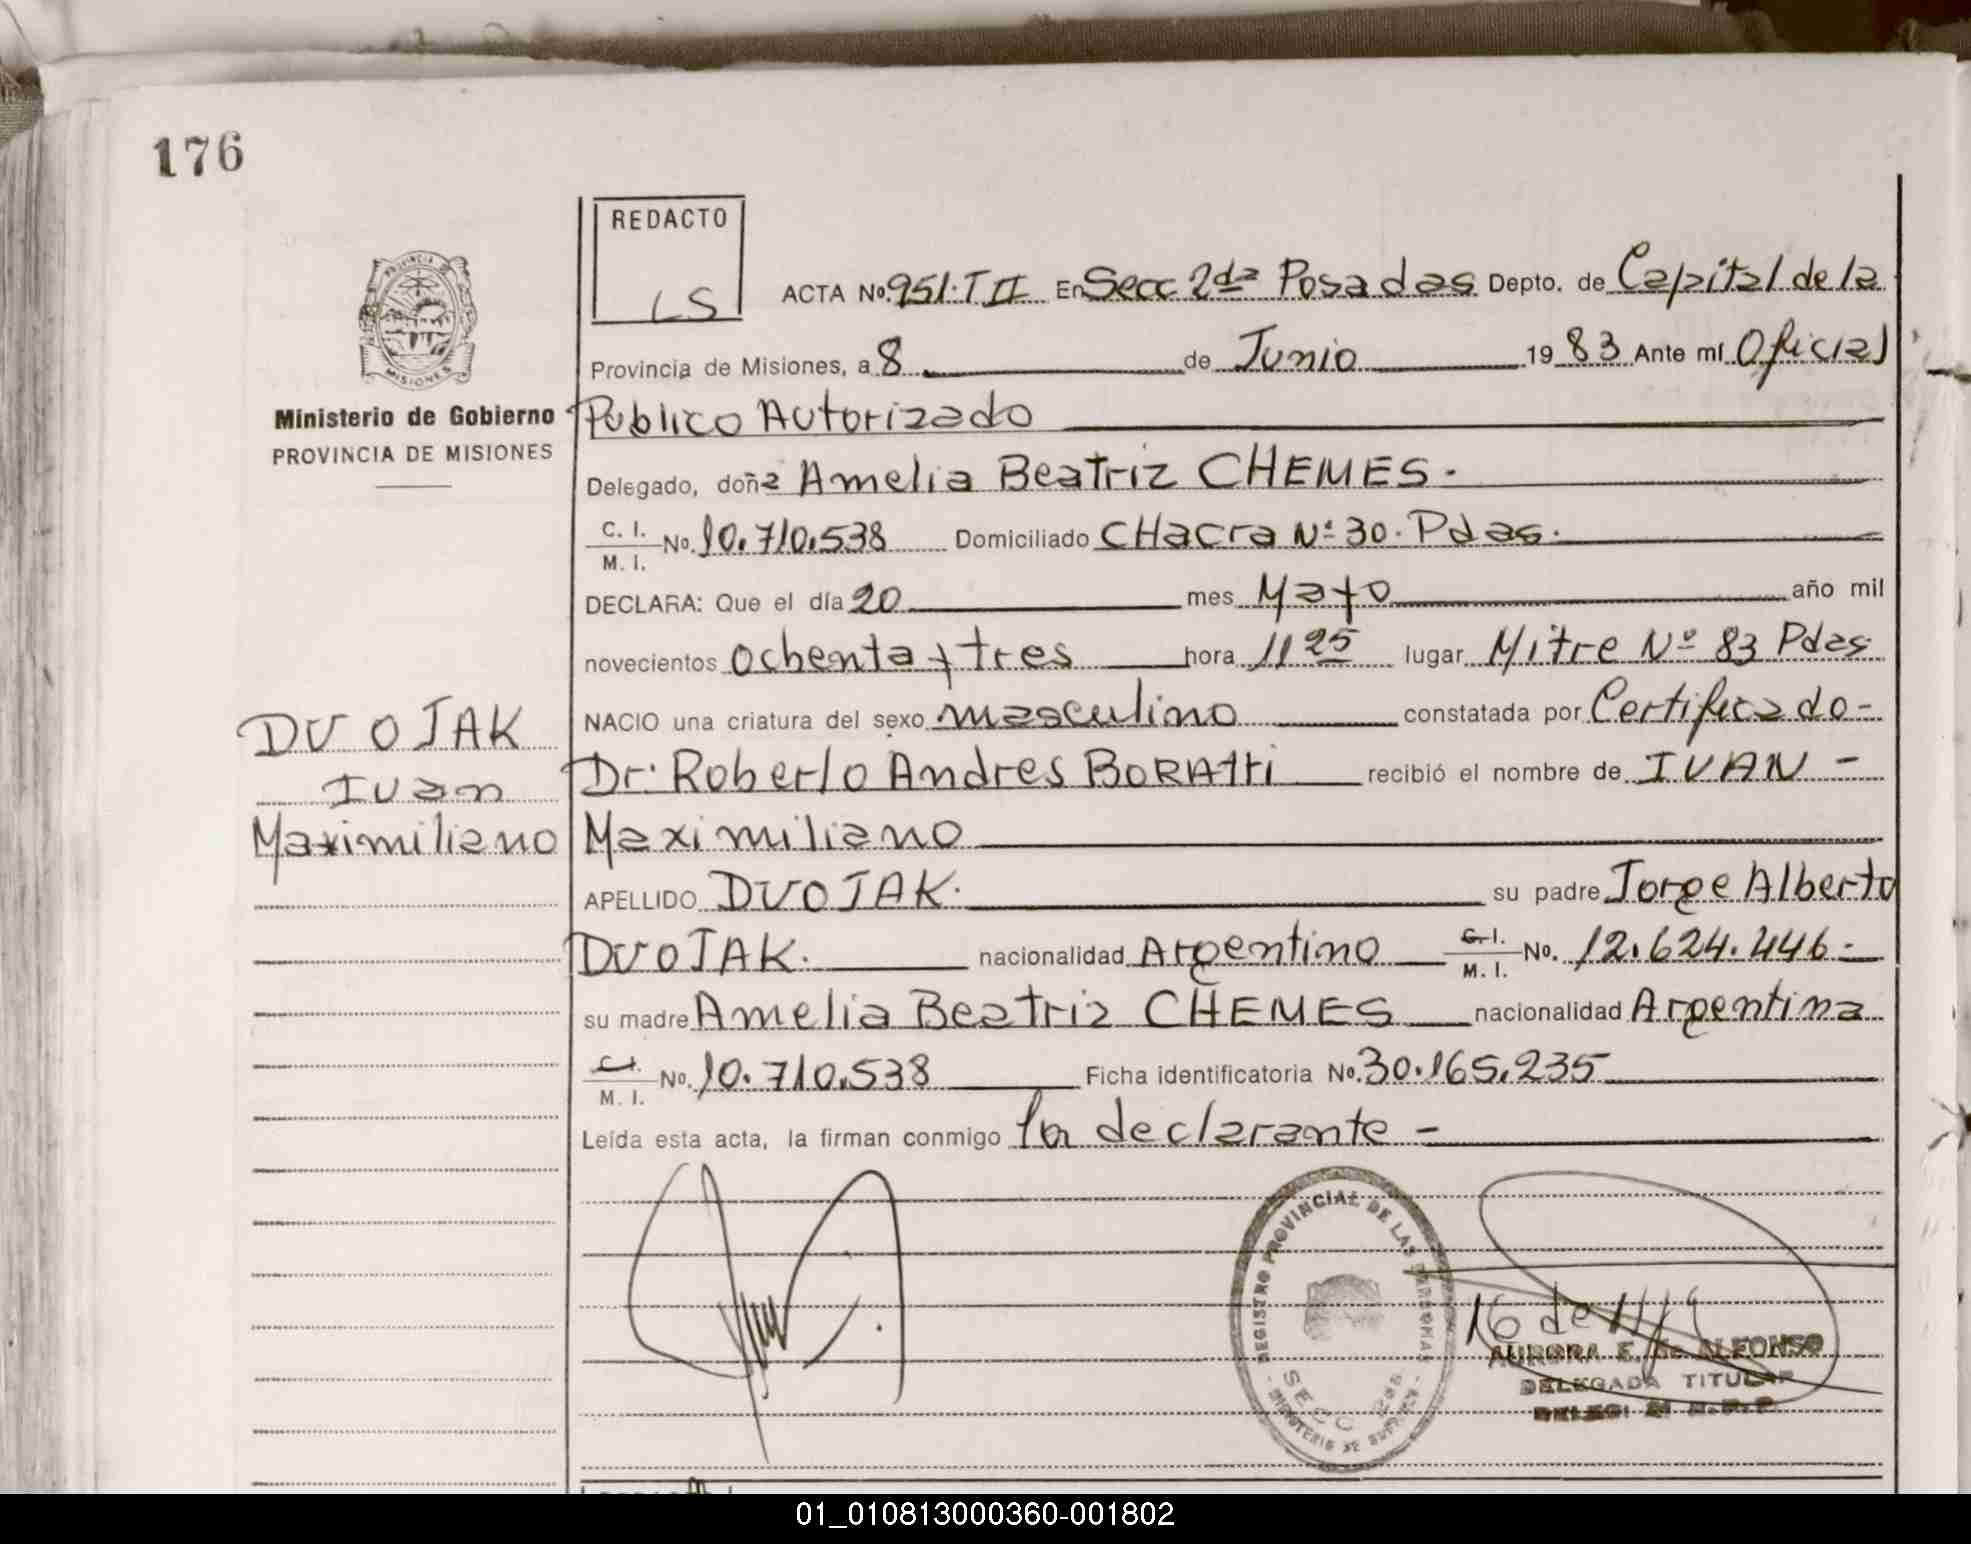 176
REDACTO
LS
PROVINCIA DE
MISIONES
Ministerio de Gobierno
PROVINCIA DE MISIONES
ACTA No. 951. T II En Secc 2da Posadas Depto. de Capital de la
Provincia de Misiones, a 8 de Junio 19 83 Ante mí Oficial
Publico Autorizado
Delegado, doña Amelia Beatriz CHEMES.
C. I.
M. I. No. 10.710.538 Domiciliado CHacra Nº 30. Pdas.
DECLARA: Que el día 20 mes Mayo año mil
novecientos ochenta y tres hora 11 25 lugar Mitre Nº 83 Pdas
NACIO una criatura del sexo masculino constatada por Certificado-
Dr. Roberto Andres BORAtti recibió el nombre de IVAN -
Maximiliano
DVOJAK
Ivan
Maximiliano
APELLIDO DVOJAK. su padre Jorge Alberto
DVOJAK. nacionalidad Argentino C. I.
M. I. No. 12.624.446.-
su madre Amelia Beatriz CHEMES nacionalidad Argentina
C. I.
M. I. No. 10.710.538 Ficha identificatoria No. 30.165.235
Leída esta acta, la firman conmigo la declarante -
REGISTRO PROVINCIAL DE LAS PERSONAS
SECC
16 de
AURORA E. de ALFONSO
DELEGADA TITULAR
01_010813000360-001802